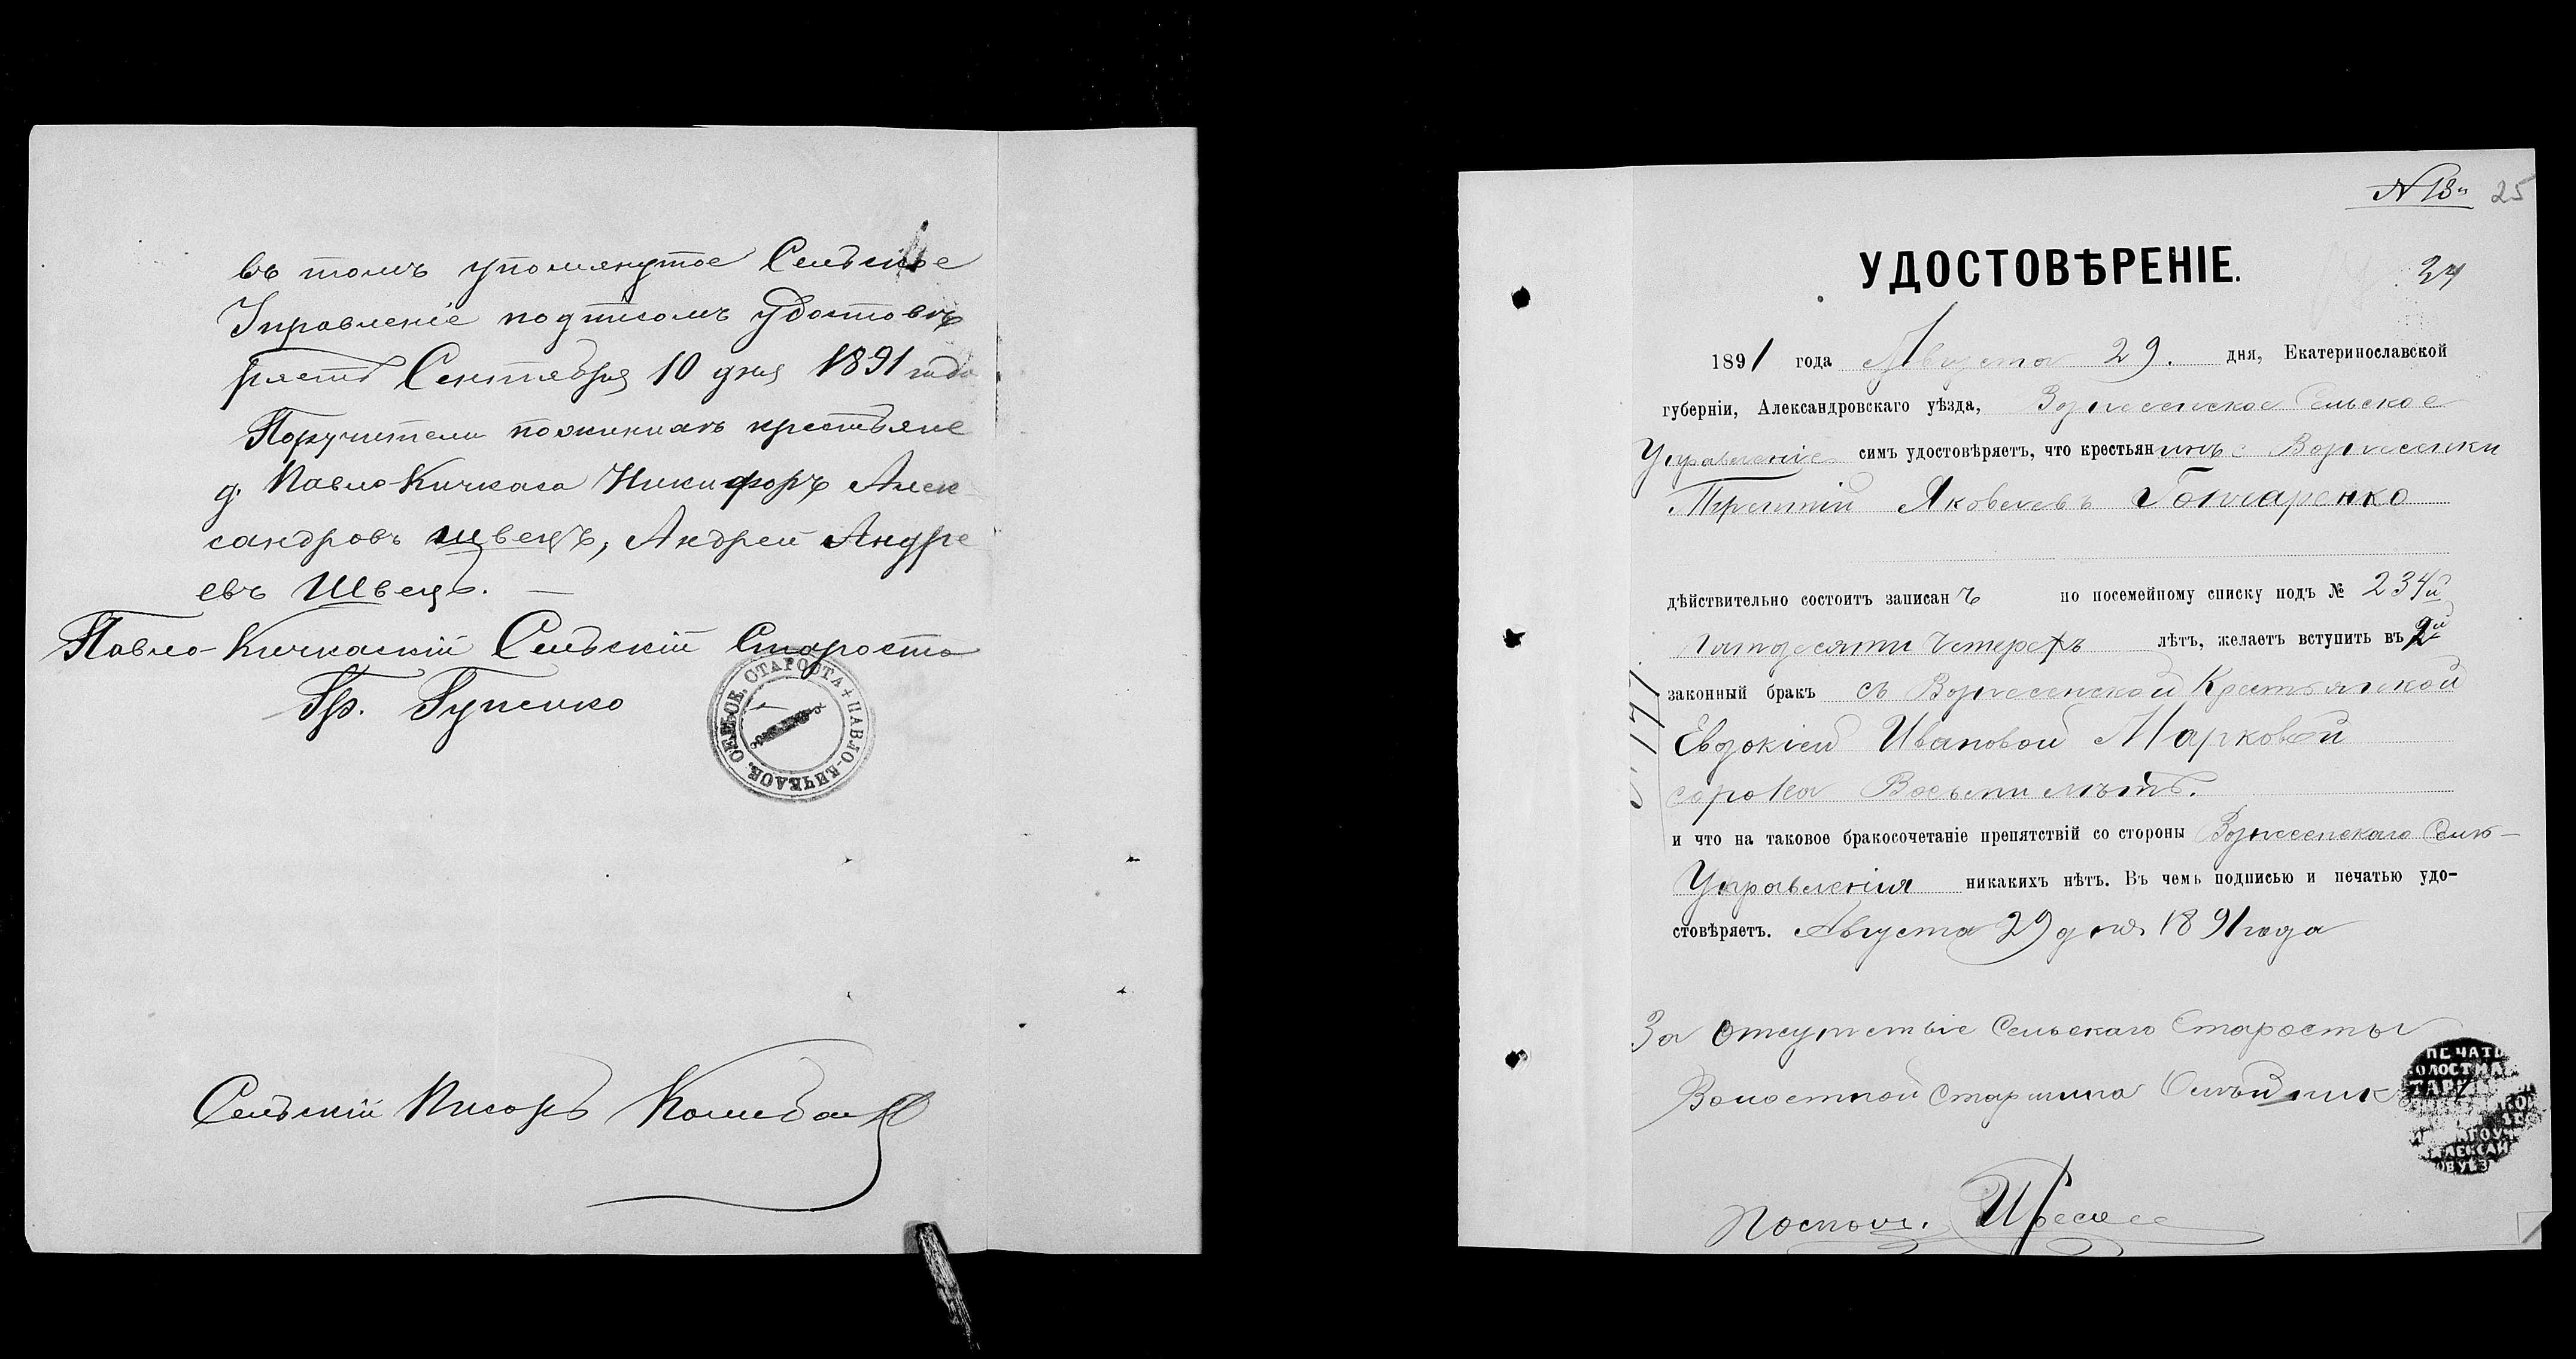 въ томъ упомянутое Сельское
Управленіе подписомъ удостовѣ
ряетъ Сентября 10 дня 1891 года
Поручители по женихѣ крестьяне
д. Павло-Кичкаса Никифоръ Алек
сандровъ Швецъ, Андрей Андре
евъ Швецъ. —
Павло-Кичкаскій Сельскій Староста
Гр.
СЕЛЬСК. СТАРОСТА + ПАВЛО-КИЧКАСОВ.
Сельскій Писарь
№ 13й 25
УДОСТОВѢРЕНІЕ.
24
1891 года Августа 29. дня, Екатеринославской
губерніи, Александровскаго уѣзда, Вознесенское Сельское
Управленіе симъ удостовѣряетъ, что крестьянинъ с Вознесенки
Терентій Яковлевъ Гончаренко
дѣйствительно состоитъ записанъ по посемейному списку подъ № 234й
Пятидесяти Четырехъ лѣтъ, желаетъ вступить въ 2й
законный бракъ съ Вознесенской Крестьянкой
Евдокіей Ивановой Марковой
сорока Восьми лѣтъ.
и что на таковое бракосочетаніе препятствій со стороны Вознесенскаго Сельс-
Управленія никакихъ нѣтъ. Въ чемъ подписью и печатью удо-
стовѣряетъ. Августа 29 дня 1891 года
За отсутствіе Сельскаго Старосты
Волостной Старшина
ПЕЧАТЬ